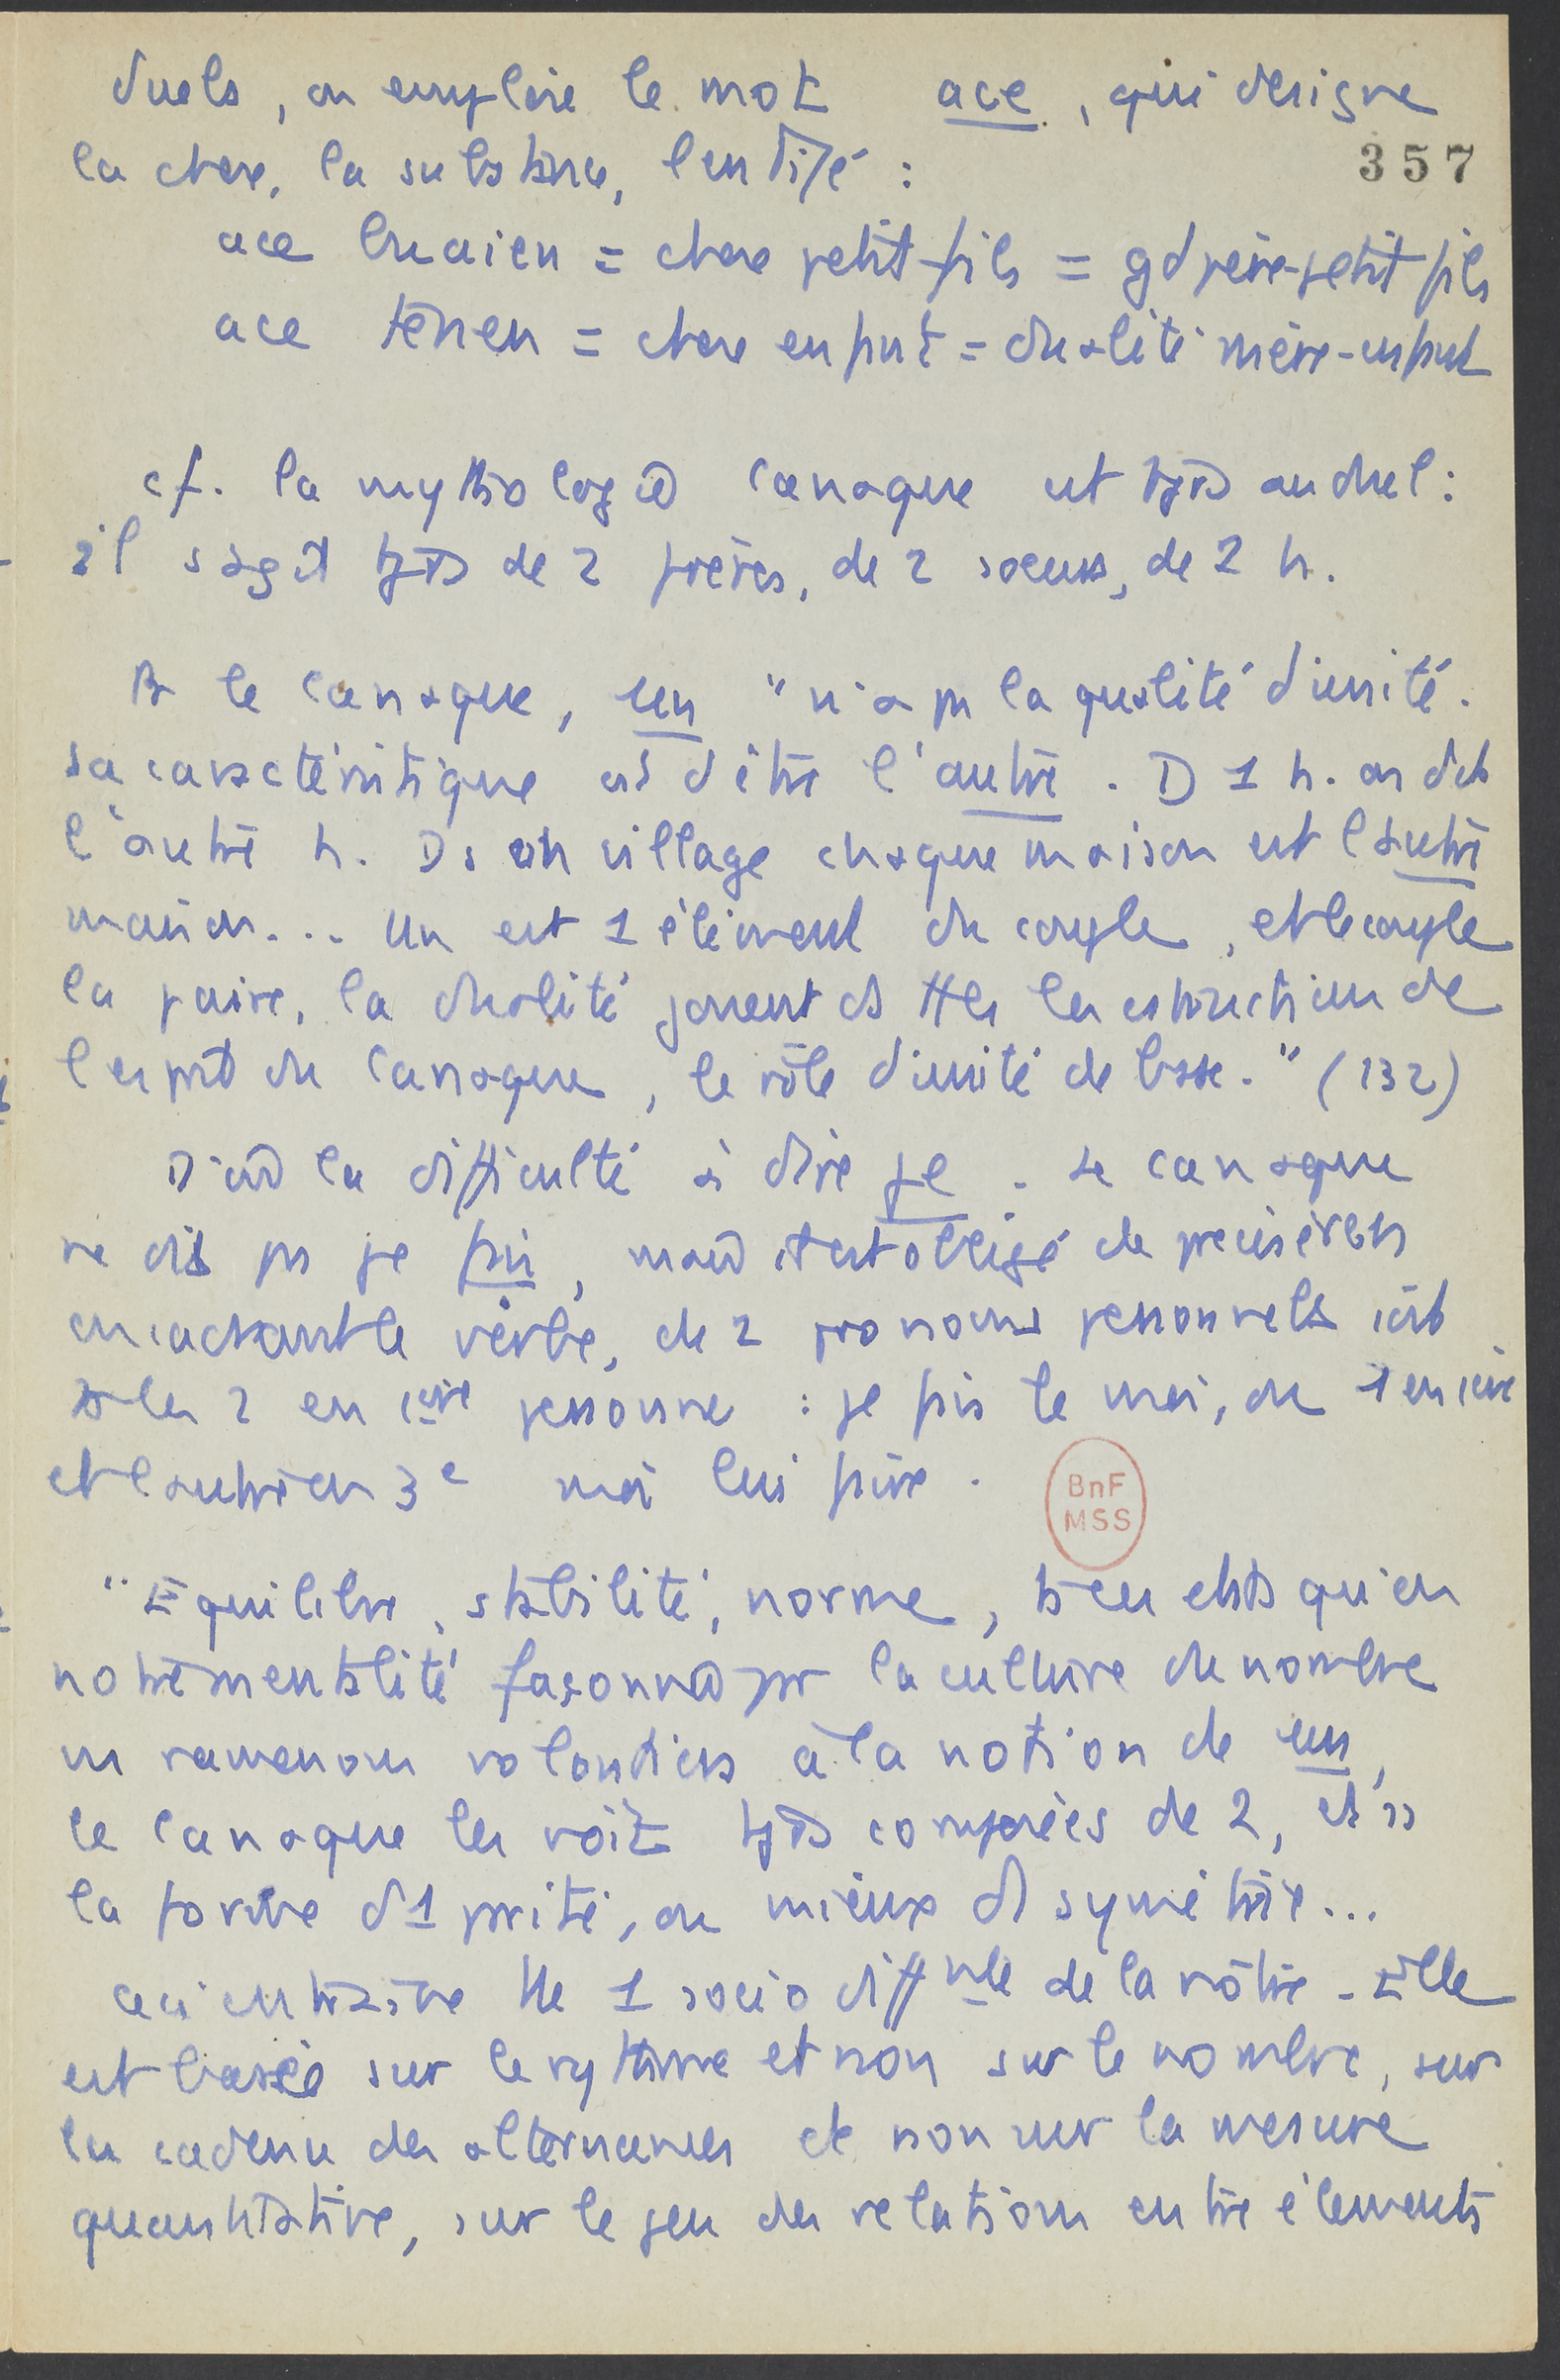 duels, on emploie le mot ace, qui désigne
357
la chose, la substance, l'entité :
ace = chose petit-fils = gd père-petit fils
ace = chose enfant = dualité mère-enfant
cf. la mythologie canaque est tjrs au duel :
il s'agit tjrs de 2 frères, de 2 soeurs, de 2 h.
le canaque, un "n'a pas la qualité d'unité.
sa caractéristique est d'être l'autre. D 1 h. on dit
l'autre h. Ds un village chaque maison est l'autre
maison... Un est 1 élément du couple, et le couple
la paire, la dualité jouent ds ttes les abstractions de
l'esprit du Canaque, le rôle d'unité de base." (132)
D'où la difficulté à dire je. Le canaque
ne dit pas je fais, mais il est obligé de préciser
encadrant le verbe, de 2 pronoms personnels soit
les 2 en 1ère personne : je fais le moi, ou 1 en 1ère
et l'autre en 3e moi lui faire.
BnF
MSS
"Equilibre, stabilité, norme, ts ces états qu'en
notre mentalité façonnée par la culture du nombre
ns ramenons volontiers à la notion de un,
le canaque les voit tjrs composés de 2, et ss
la forme d'1 parité, ou mieux d'1 symétrie...
ceci entraîne tte 1 socio diff nle de la nôtre - Elle
est basée sur le rythme et non sur le nombre, sur
la cadence des alternances et non sur la mesure
quantitative, sur le jeu des relations entre éléments